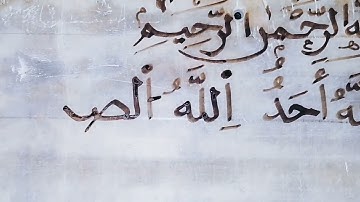 الرَّحْمٰنِ الرَّحِيمِ
أَحَدٌ اَللّٰهُ الص